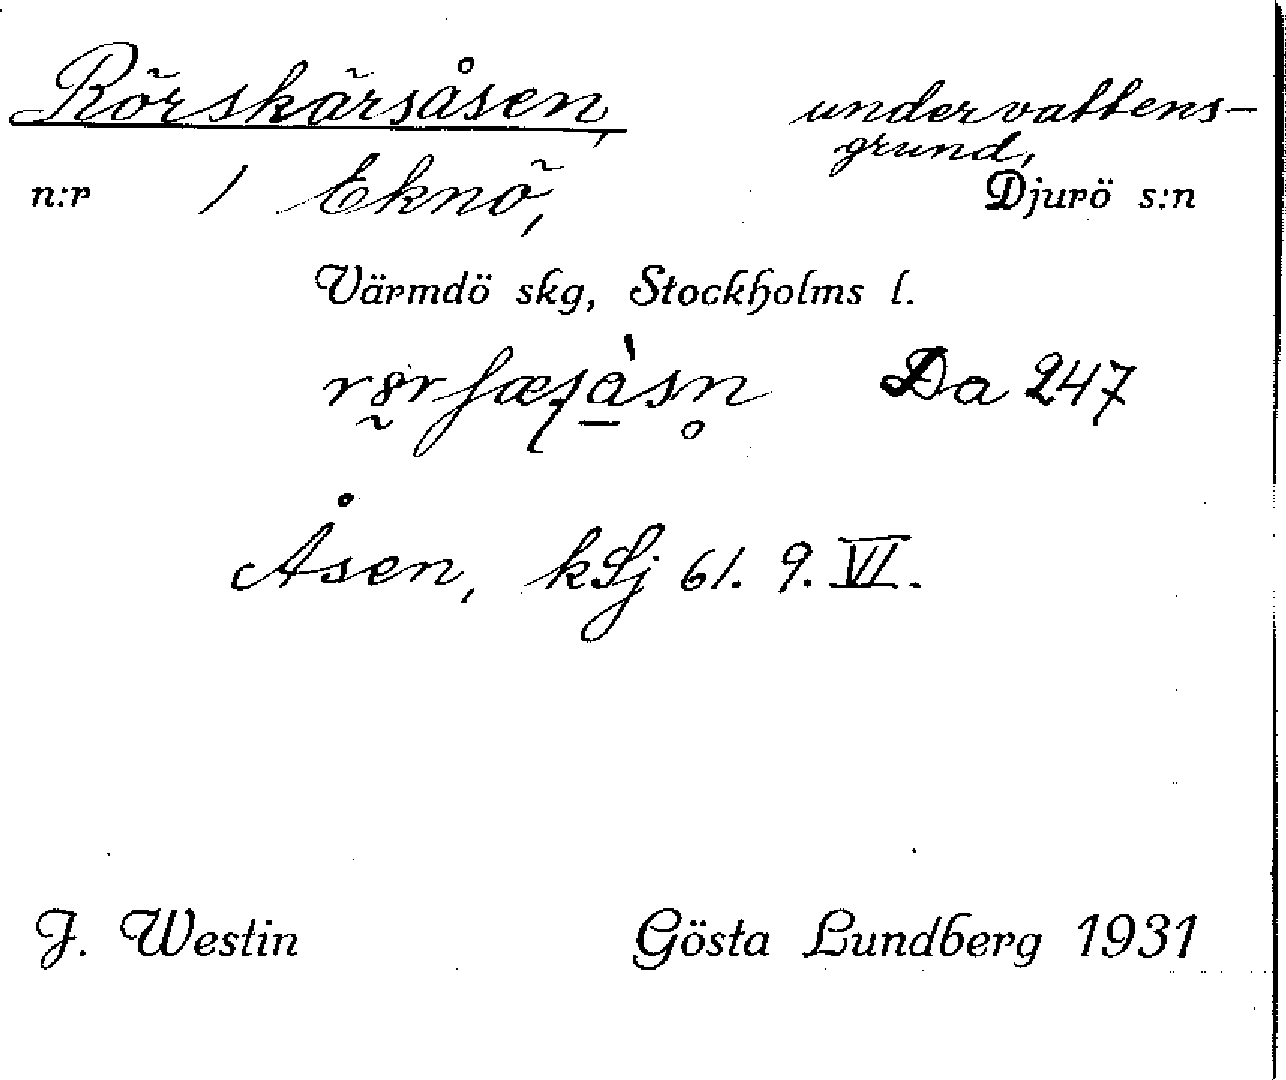 Rörskärsåsen, undervattens-
grund,
n:r 1 Eknö, Djurö s:n
Värmdö skg, Stockholms l.
Da 247
Åsen, kSj 61. 9. VI.
J. Westin Gösta Lundberg 1931